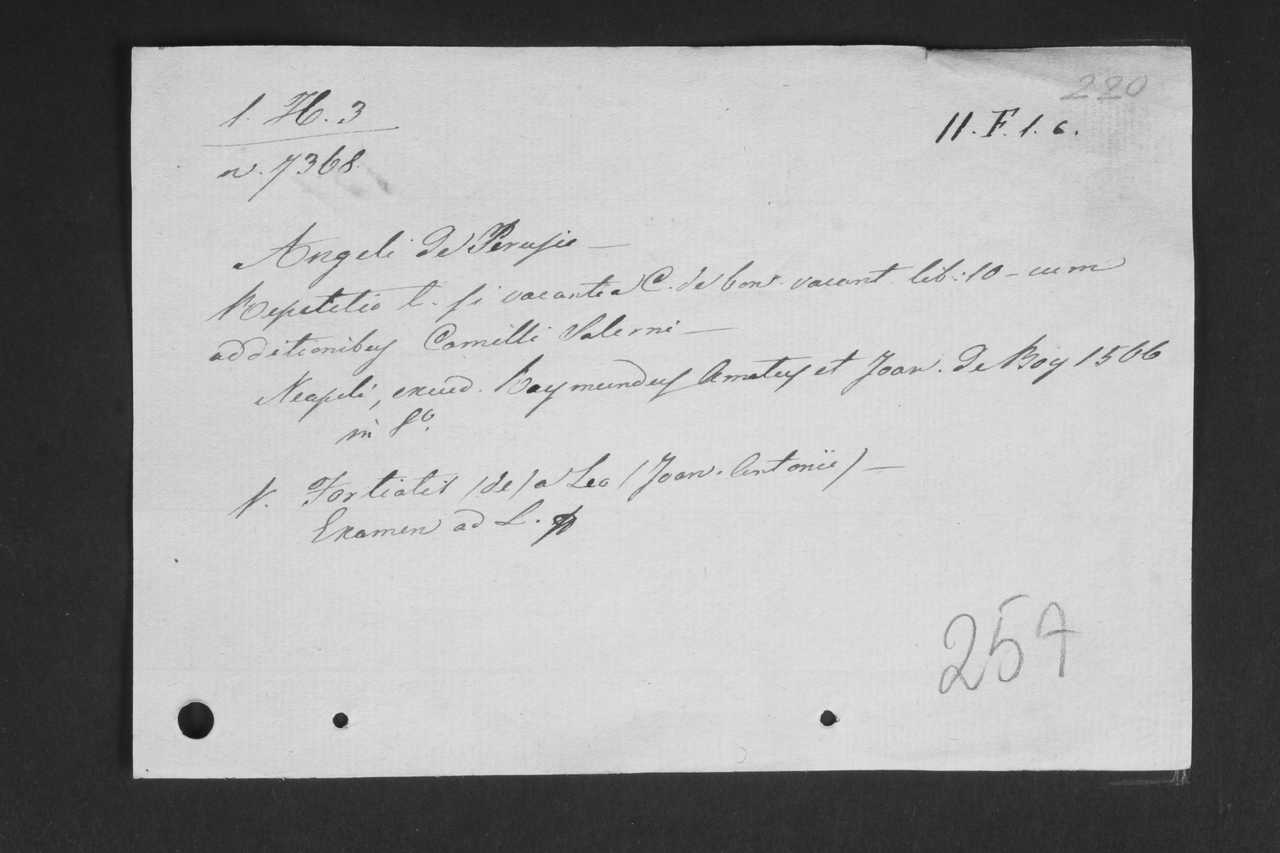 220
1. H. 3
11. F. 1. 6.
n. 7368
Angeli de Perusio —
Repetitio l. si vacantia C. de bon. vacant. lib. 10 - cum
additionibus Camilli Salerni —
Neapoli, excud. Raymundus Amatus et Joan. de Boy 1566
in 8º.
V. Fortiatis (de) a Leo (Joan. Antonii) —
Examen ad L.
257